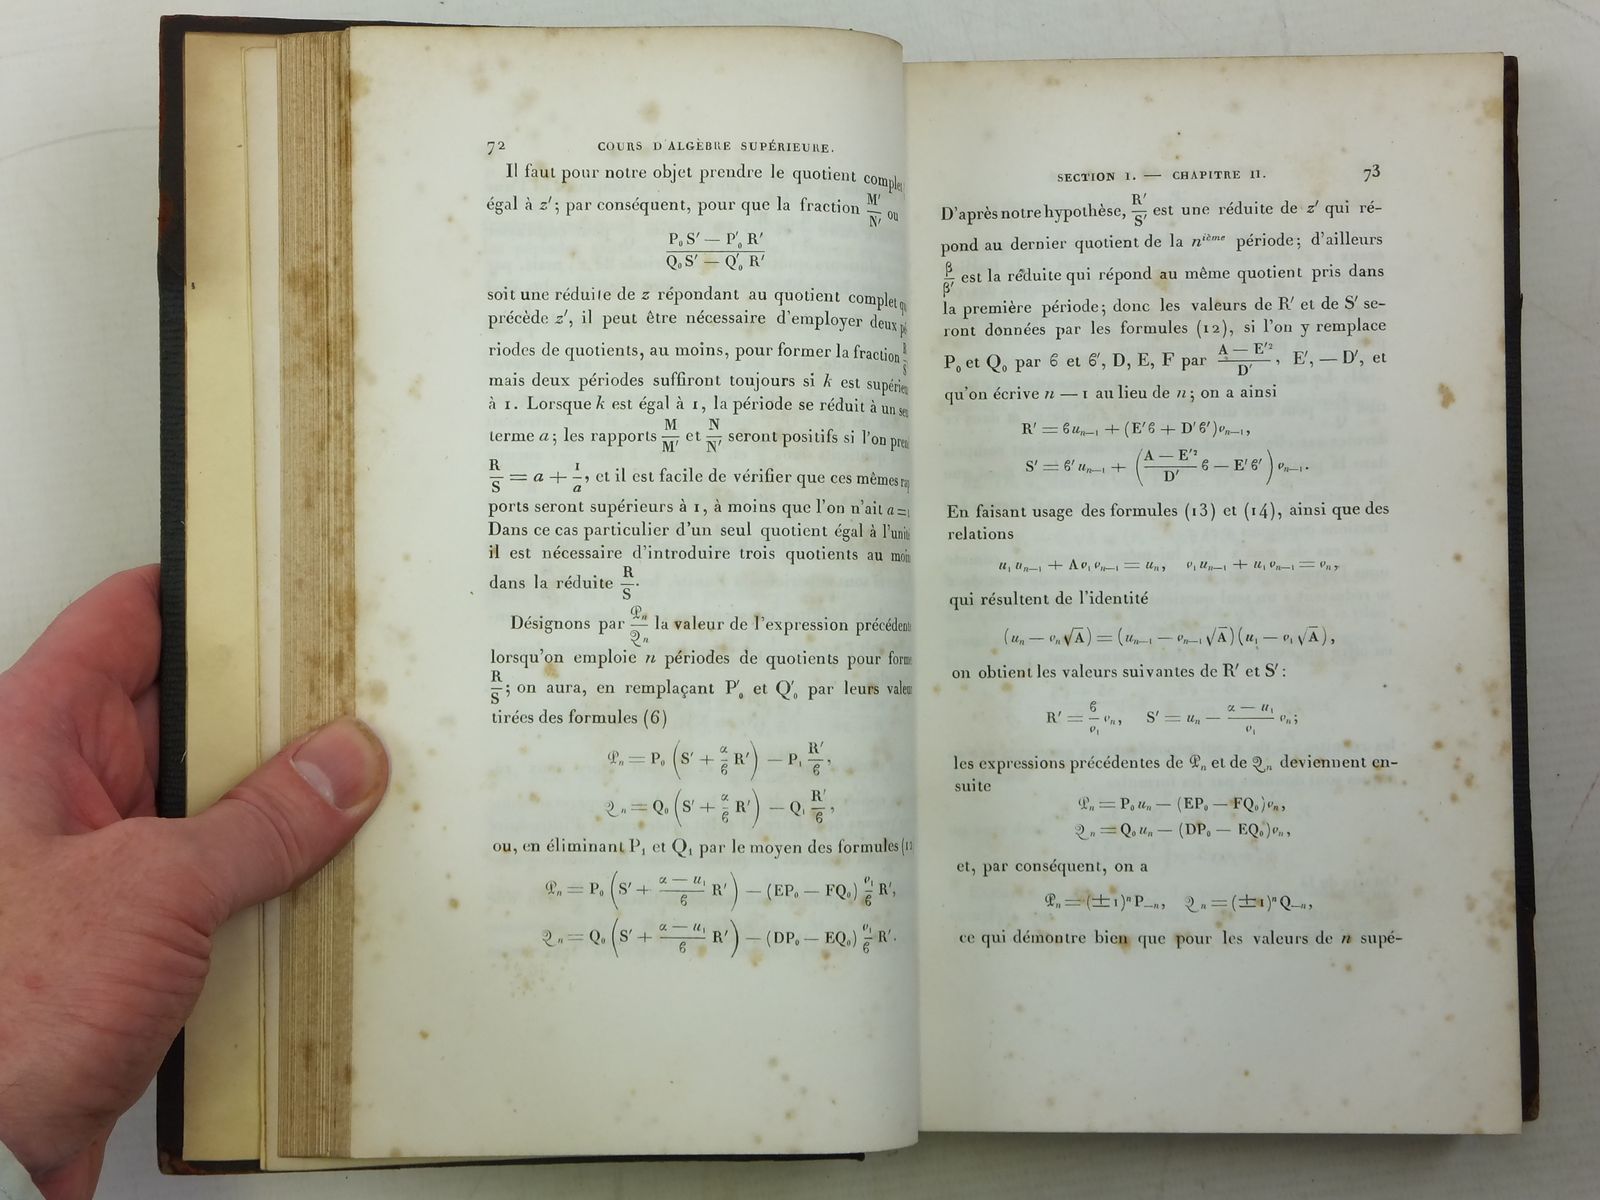 72 COURS D'ALGÈBRE SUPÉRIEURE.
Il faut pour notre objet prendre le quotient complet
égal à z'; par conséquent, pour que la fraction M'/N' ou
(P₀S' — P'₀R')/(Q₀S' — Q'₀R')
soit une réduite de z répondant au quotient complet qu
précède z', il peut être nécessaire d'employer deux pé
riodes de quotients, au moins, pour former la fraction R/S
mais deux périodes suffiront toujours si k est supérieu
à 1. Lorsque k est égal à 1, la période se réduit à un seu
terme a; les rapports M/M' et N/N' seront positifs si l'on pren
R/S = a + 1/a, et il est facile de vérifier que ces mêmes rap
ports seront supérieurs à 1, à moins que l'on n'ait a = 1
Dans ce cas particulier d'un seul quotient égal à l'unité
il est nécessaire d'introduire trois quotients au moin
dans la réduite R/S.
Désignons par 𝒫ₙ/𝒬ₙ la valeur de l'expression précédente
lorsqu'on emploie n périodes de quotients pour forme
R/S; on aura, en remplaçant P'₀ et Q'₀ par leurs valeur
tirées des formules (6)
𝒫ₙ = P₀ (S' + α/ϐ R') — P₁ R'/ϐ,
𝒬ₙ = Q₀ (S' + α/ϐ R') — Q₁ R'/ϐ,
ou, en éliminant P₁ et Q₁ par le moyen des formules (12
𝒫ₙ = P₀ (S' + (α — u₁)/ϐ R') — (EP₀ — FQ₀) v₁/ϐ R',
𝒬ₙ = Q₀ (S' + (α — u₁)/ϐ R') — (DP₀ — EQ₀) v₁/ϐ R'.
SECTION I. — CHAPITRE II. 73
D'après notre hypothèse, R'/S' est une réduite de z' qui ré-
pond au dernier quotient de la nⁱᵉᵐᵉ période; d'ailleurs
β/β' est la réduite qui répond au même quotient pris dans
la première période; donc les valeurs de R' et de S' se-
ront données par les formules (12), si l'on y remplace
P₀ et Q₀ par ϐ et ϐ', D, E, F par (A — E'²)/D', E', — D', et
qu'on écrive n — 1 au lieu de n; on a ainsi
R' = ϐuₙ₋₁ + (E'ϐ + D'ϐ')vₙ₋₁,
S' = ϐ'uₙ₋₁ + ((A — E'²)/D' ϐ — E'ϐ') vₙ₋₁.
En faisant usage des formules (13) et (14), ainsi que des
relations
u₁uₙ₋₁ + Av₁vₙ₋₁ = uₙ, v₁uₙ₋₁ + u₁vₙ₋₁ = vₙ,
qui résultent de l'identité
(uₙ — vₙ√A) = (uₙ₋₁ — vₙ₋₁√A)(u₁ — v₁√A),
on obtient les valeurs suivantes de R' et S' :
R' = ϐ/v₁ vₙ, S' = uₙ — (α — u₁)/v₁ vₙ;
les expressions précédentes de 𝒫ₙ et de 𝒬ₙ deviennent en-
suite
𝒫ₙ = P₀uₙ — (EP₀ — FQ₀)vₙ,
𝒬ₙ = Q₀uₙ — (DP₀ — EQ₀)vₙ,
et, par conséquent, on a
𝒫ₙ = (±1)ⁿP₋ₙ, 𝒬ₙ = (±1)ⁿQ₋ₙ,
ce qui démontre bien que pour les valeurs de n supé-